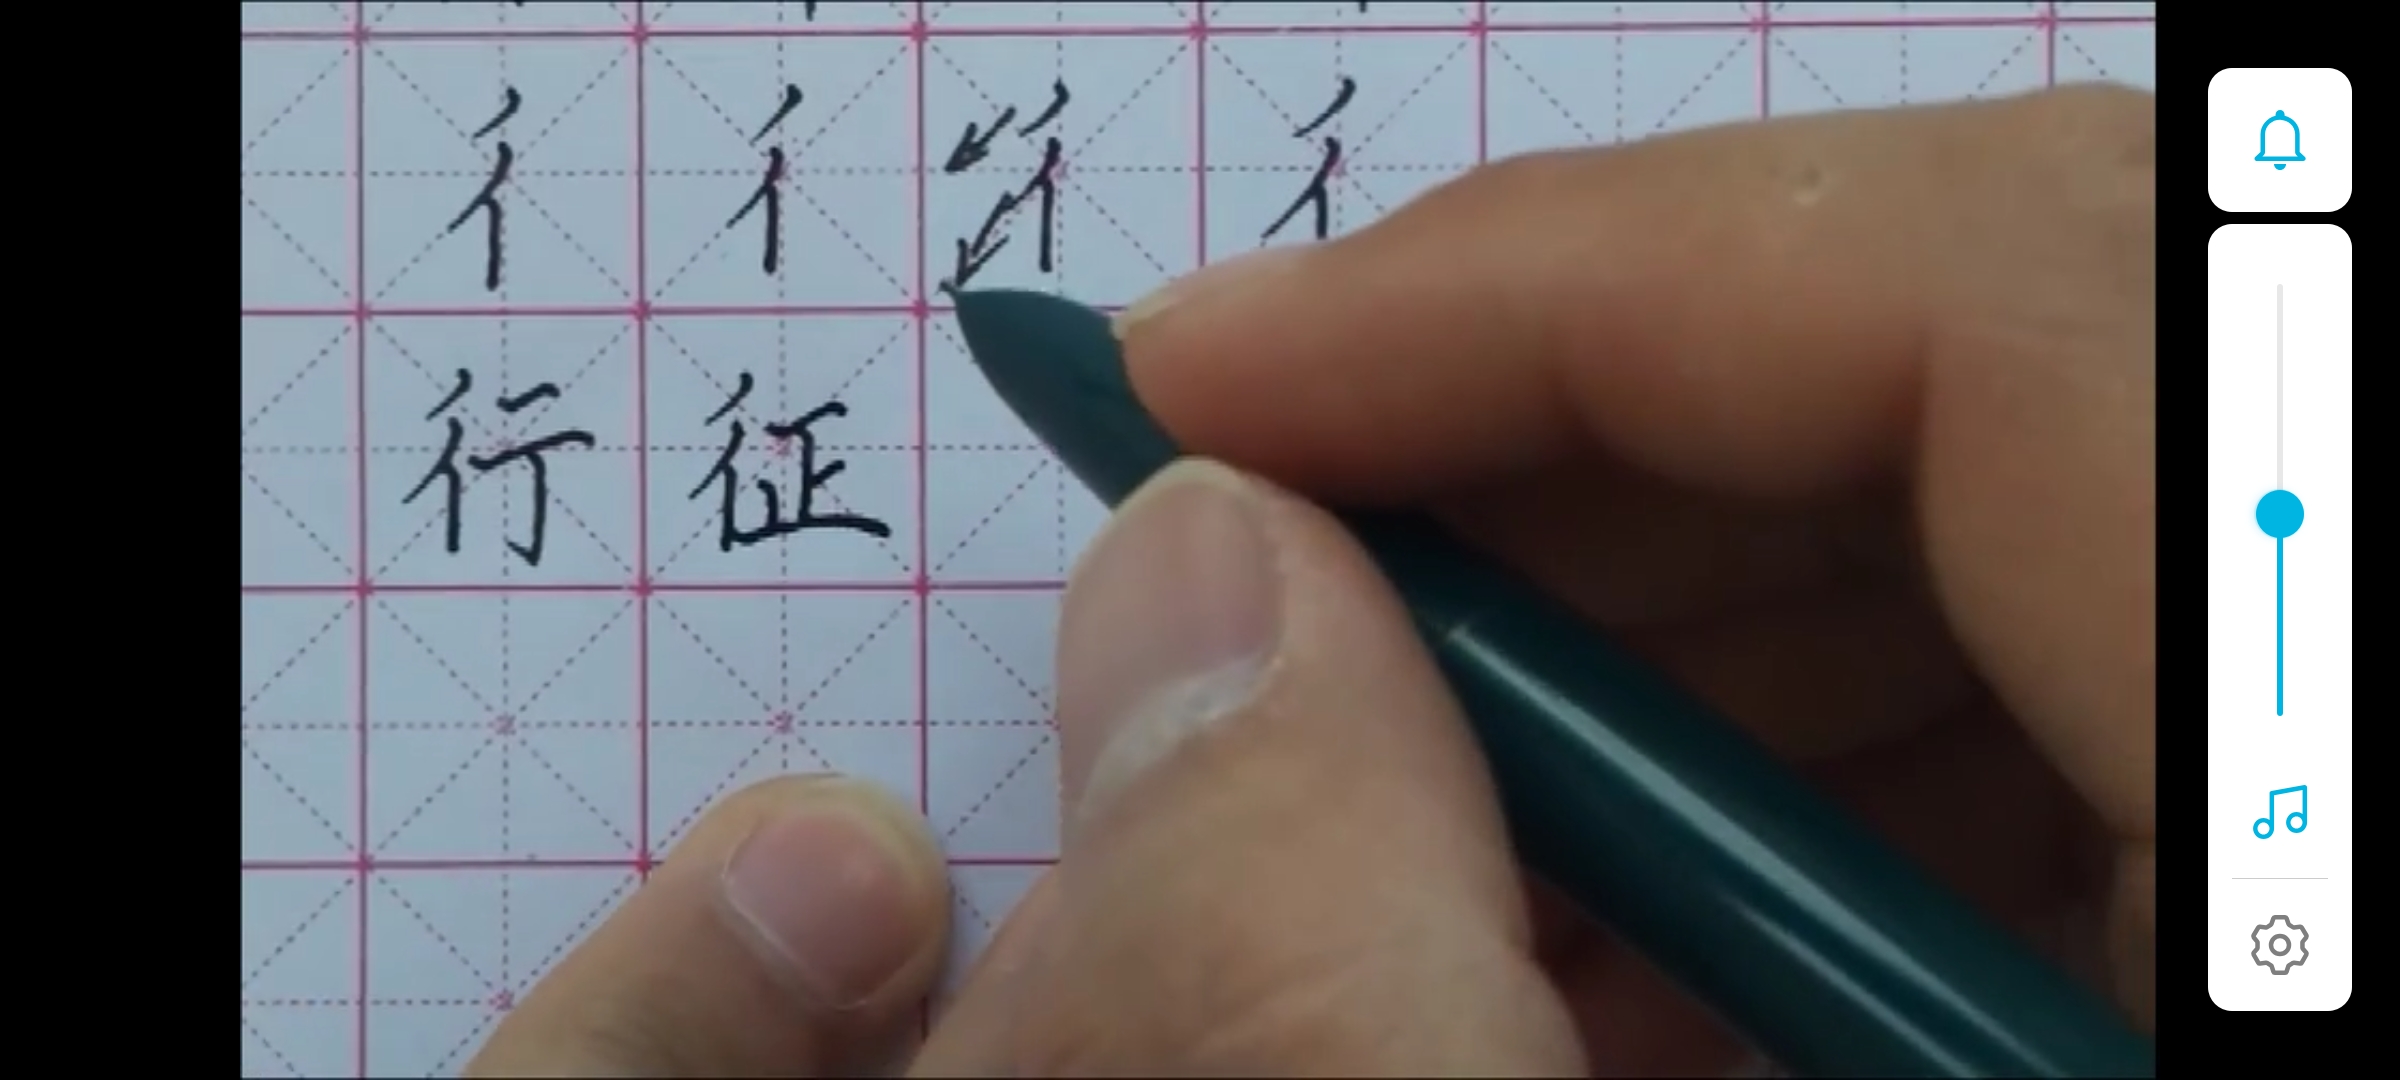 彳 彳 彳 彳
行 征